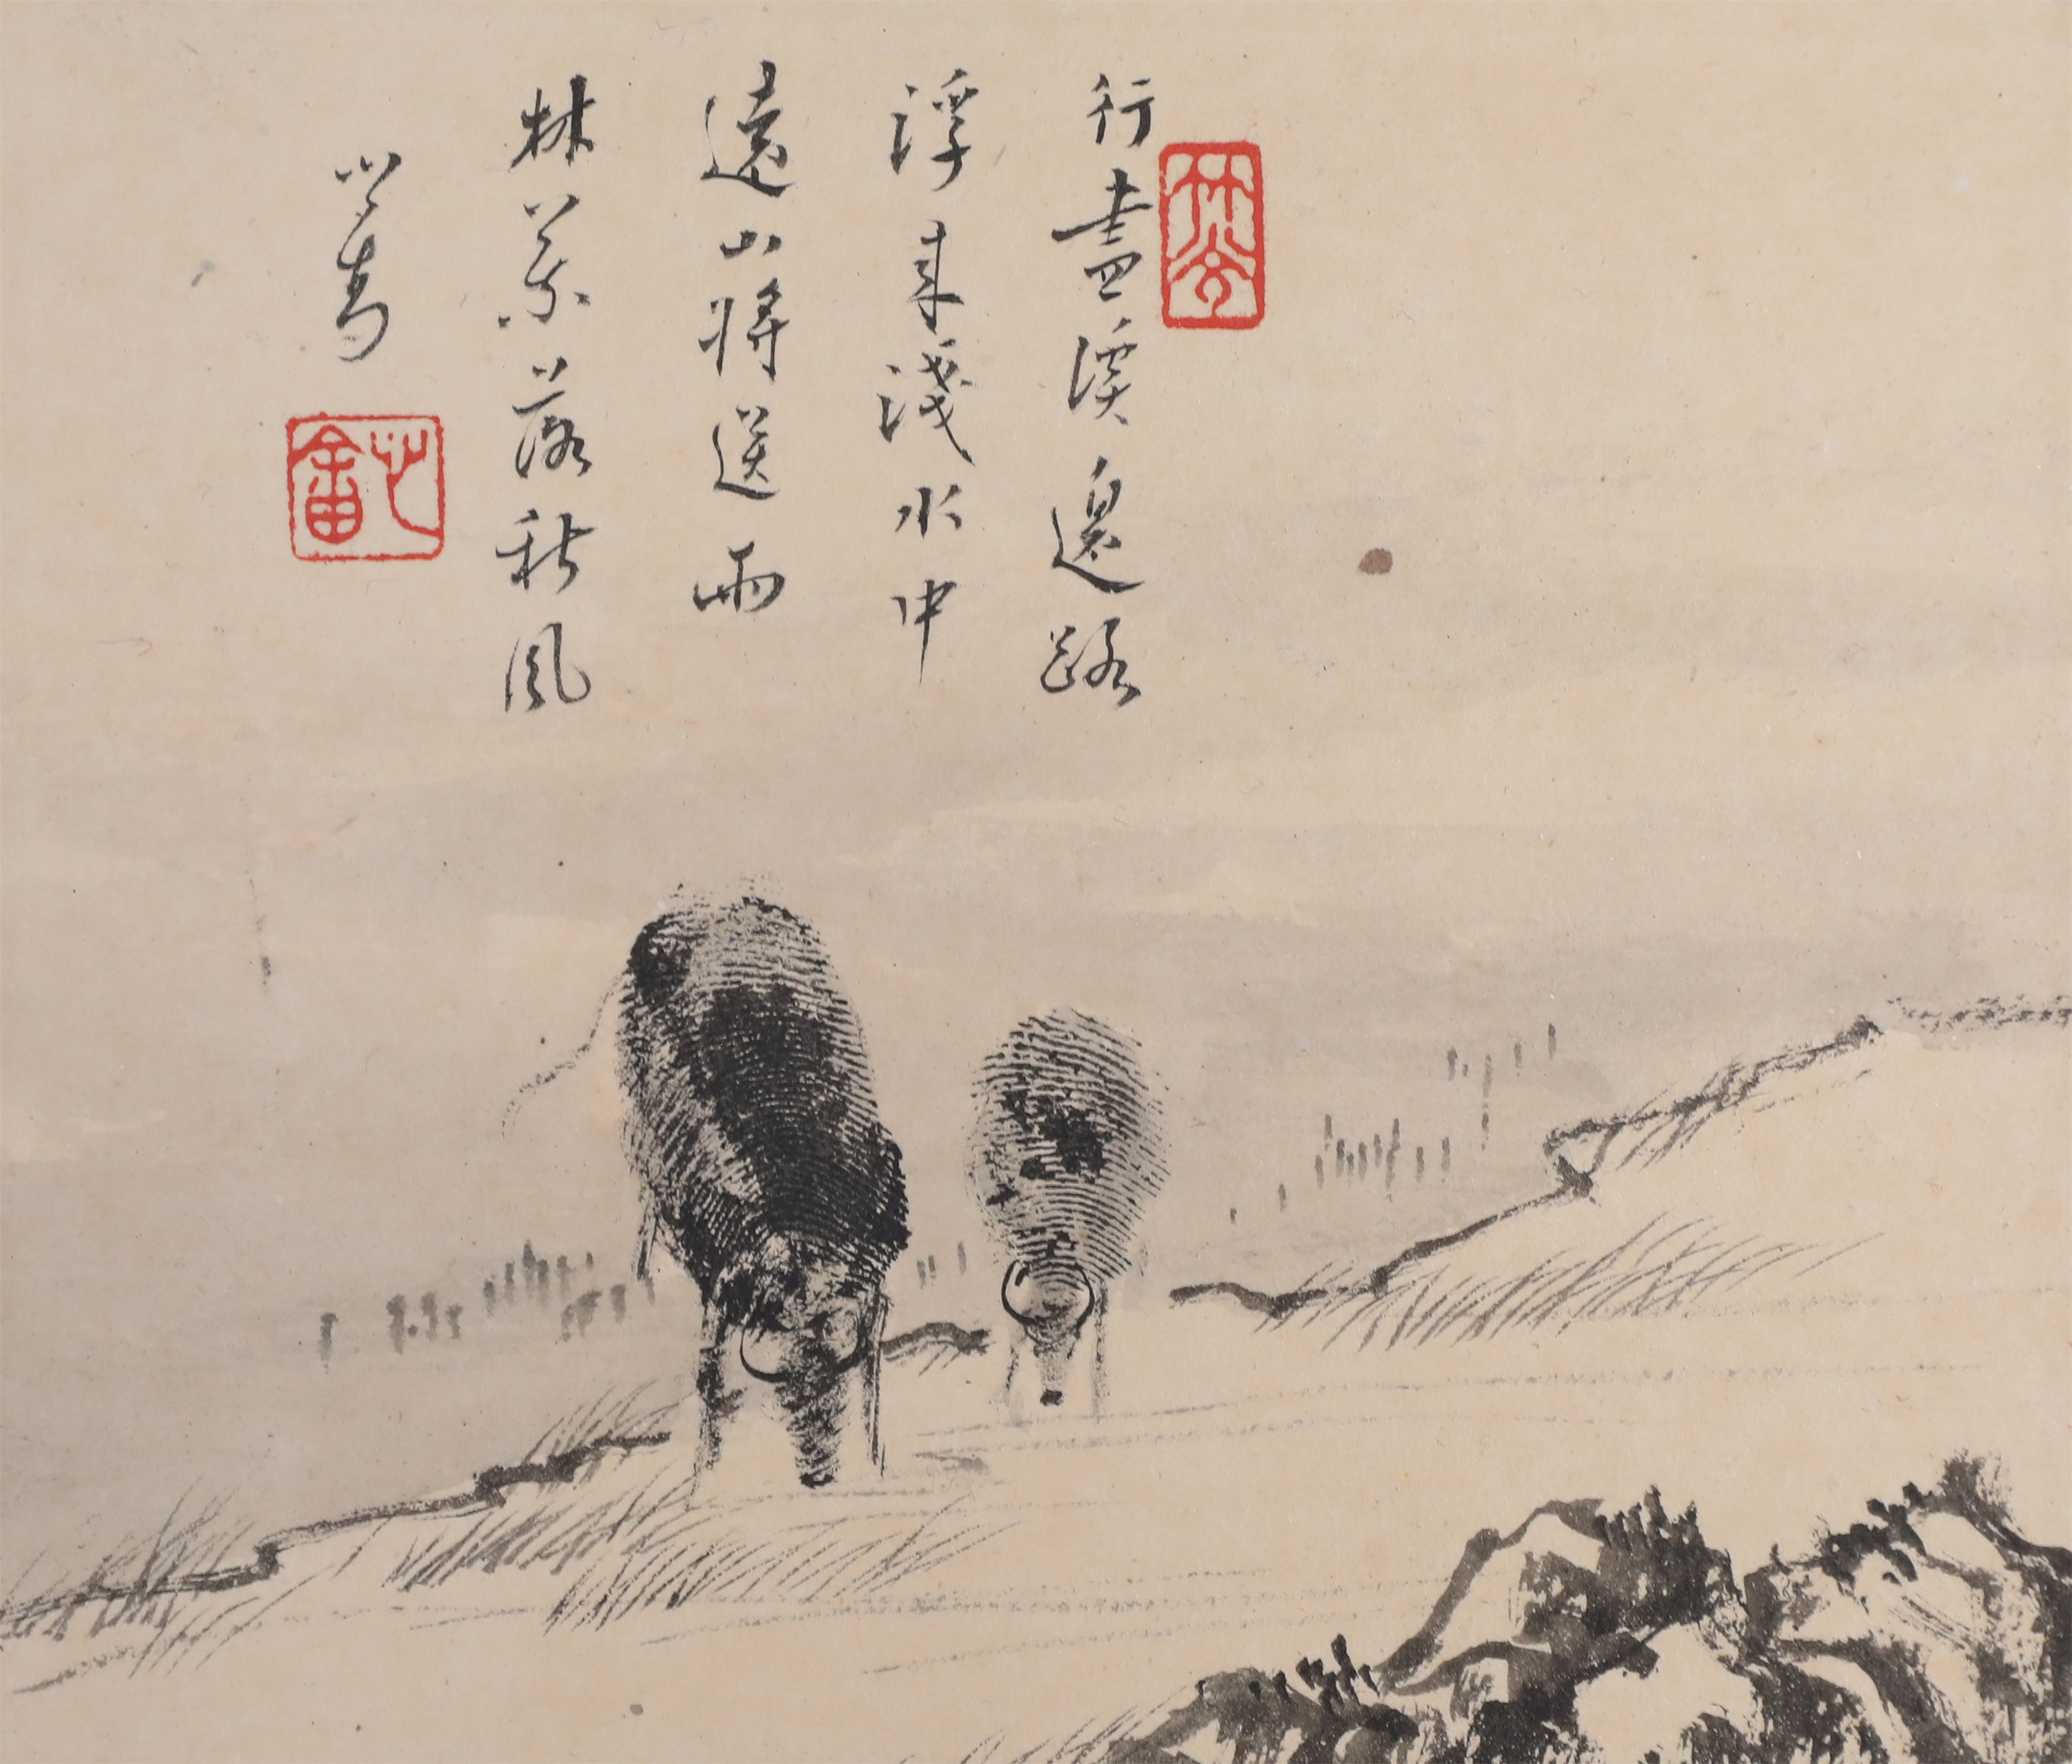 行盡溪邊路
浮來淺水中
遠山將送雨
林葉落秋風
心畬
心畬